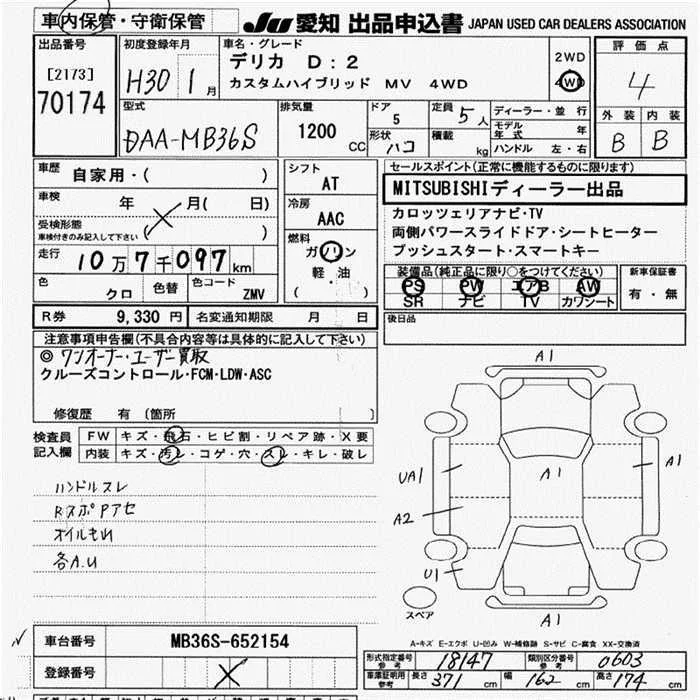 車内保管・守衛保管
JU 愛知 出品申込書 JAPAN USED CAR DEALERS ASSOCIATION
出品番号
[2173]
70174
初度登録年月
H30 1月
車名・グレード
デリカ D:2
カスタムハイブリッド MV 4WD
2WD
4WD
評価点
4
外装 内装
B B
型式
DAA-MB36S
排気量
1200 CC
ドア 5
形状 ハコ
定員 5人
積載 kg
ディーラー・並行
モデル年式 年
ハンドル 左・右
車歴 自家用・( )
車検 年 月( 日)
受検形態
車検付きのみ記入して下さい ( )
走行 10万7千097km
色 クロ 色替 色コード ZMV
シフト
AT
冷房
AAC
燃料
ガソリン
軽・油
( )
セールスポイント(正常に機能するものに限ります)
MITSUBISHIディーラー出品
カロッツェリアナビ・TV
両側パワースライドドア・シートヒーター
プッシュスタート・スマートキー
装備品(純正品に限り○をつけてください)
PS PW エアB AW
SR ナビ TV カワシート
新車保証書
有・無
R券 9,330円 名変通知期限 月 日
後日品
注意事項申告欄(不具合内容等は具体的に記入して下さい)
◎ワンオーナー・ユーザー買取
クルーズコントロール・FCM・LDW・ASC
修復歴 有 〔箇所
検査員記入欄
FW キズ・飛石・ヒビ割・リペア跡・X要
内装 キズ・汚レ・コゲ・穴・スレ・キレ・破レ
ハンドルスレ
RスポPアセ
オイルもれ
各A.U
A1
UA1
A1
A1
A2
U1
スペア
A1
車台番号 MB36S-652154
登録番号
A-キズ E-エクボ U-凹み W-補修跡 S-サビ C-腐食 XX-交換済
形式指定番号 参考 18147 類別区分番号 参考 0603
車庫証明用 参考 長さ 371 cm 幅 162 cm 高さ 174 cm